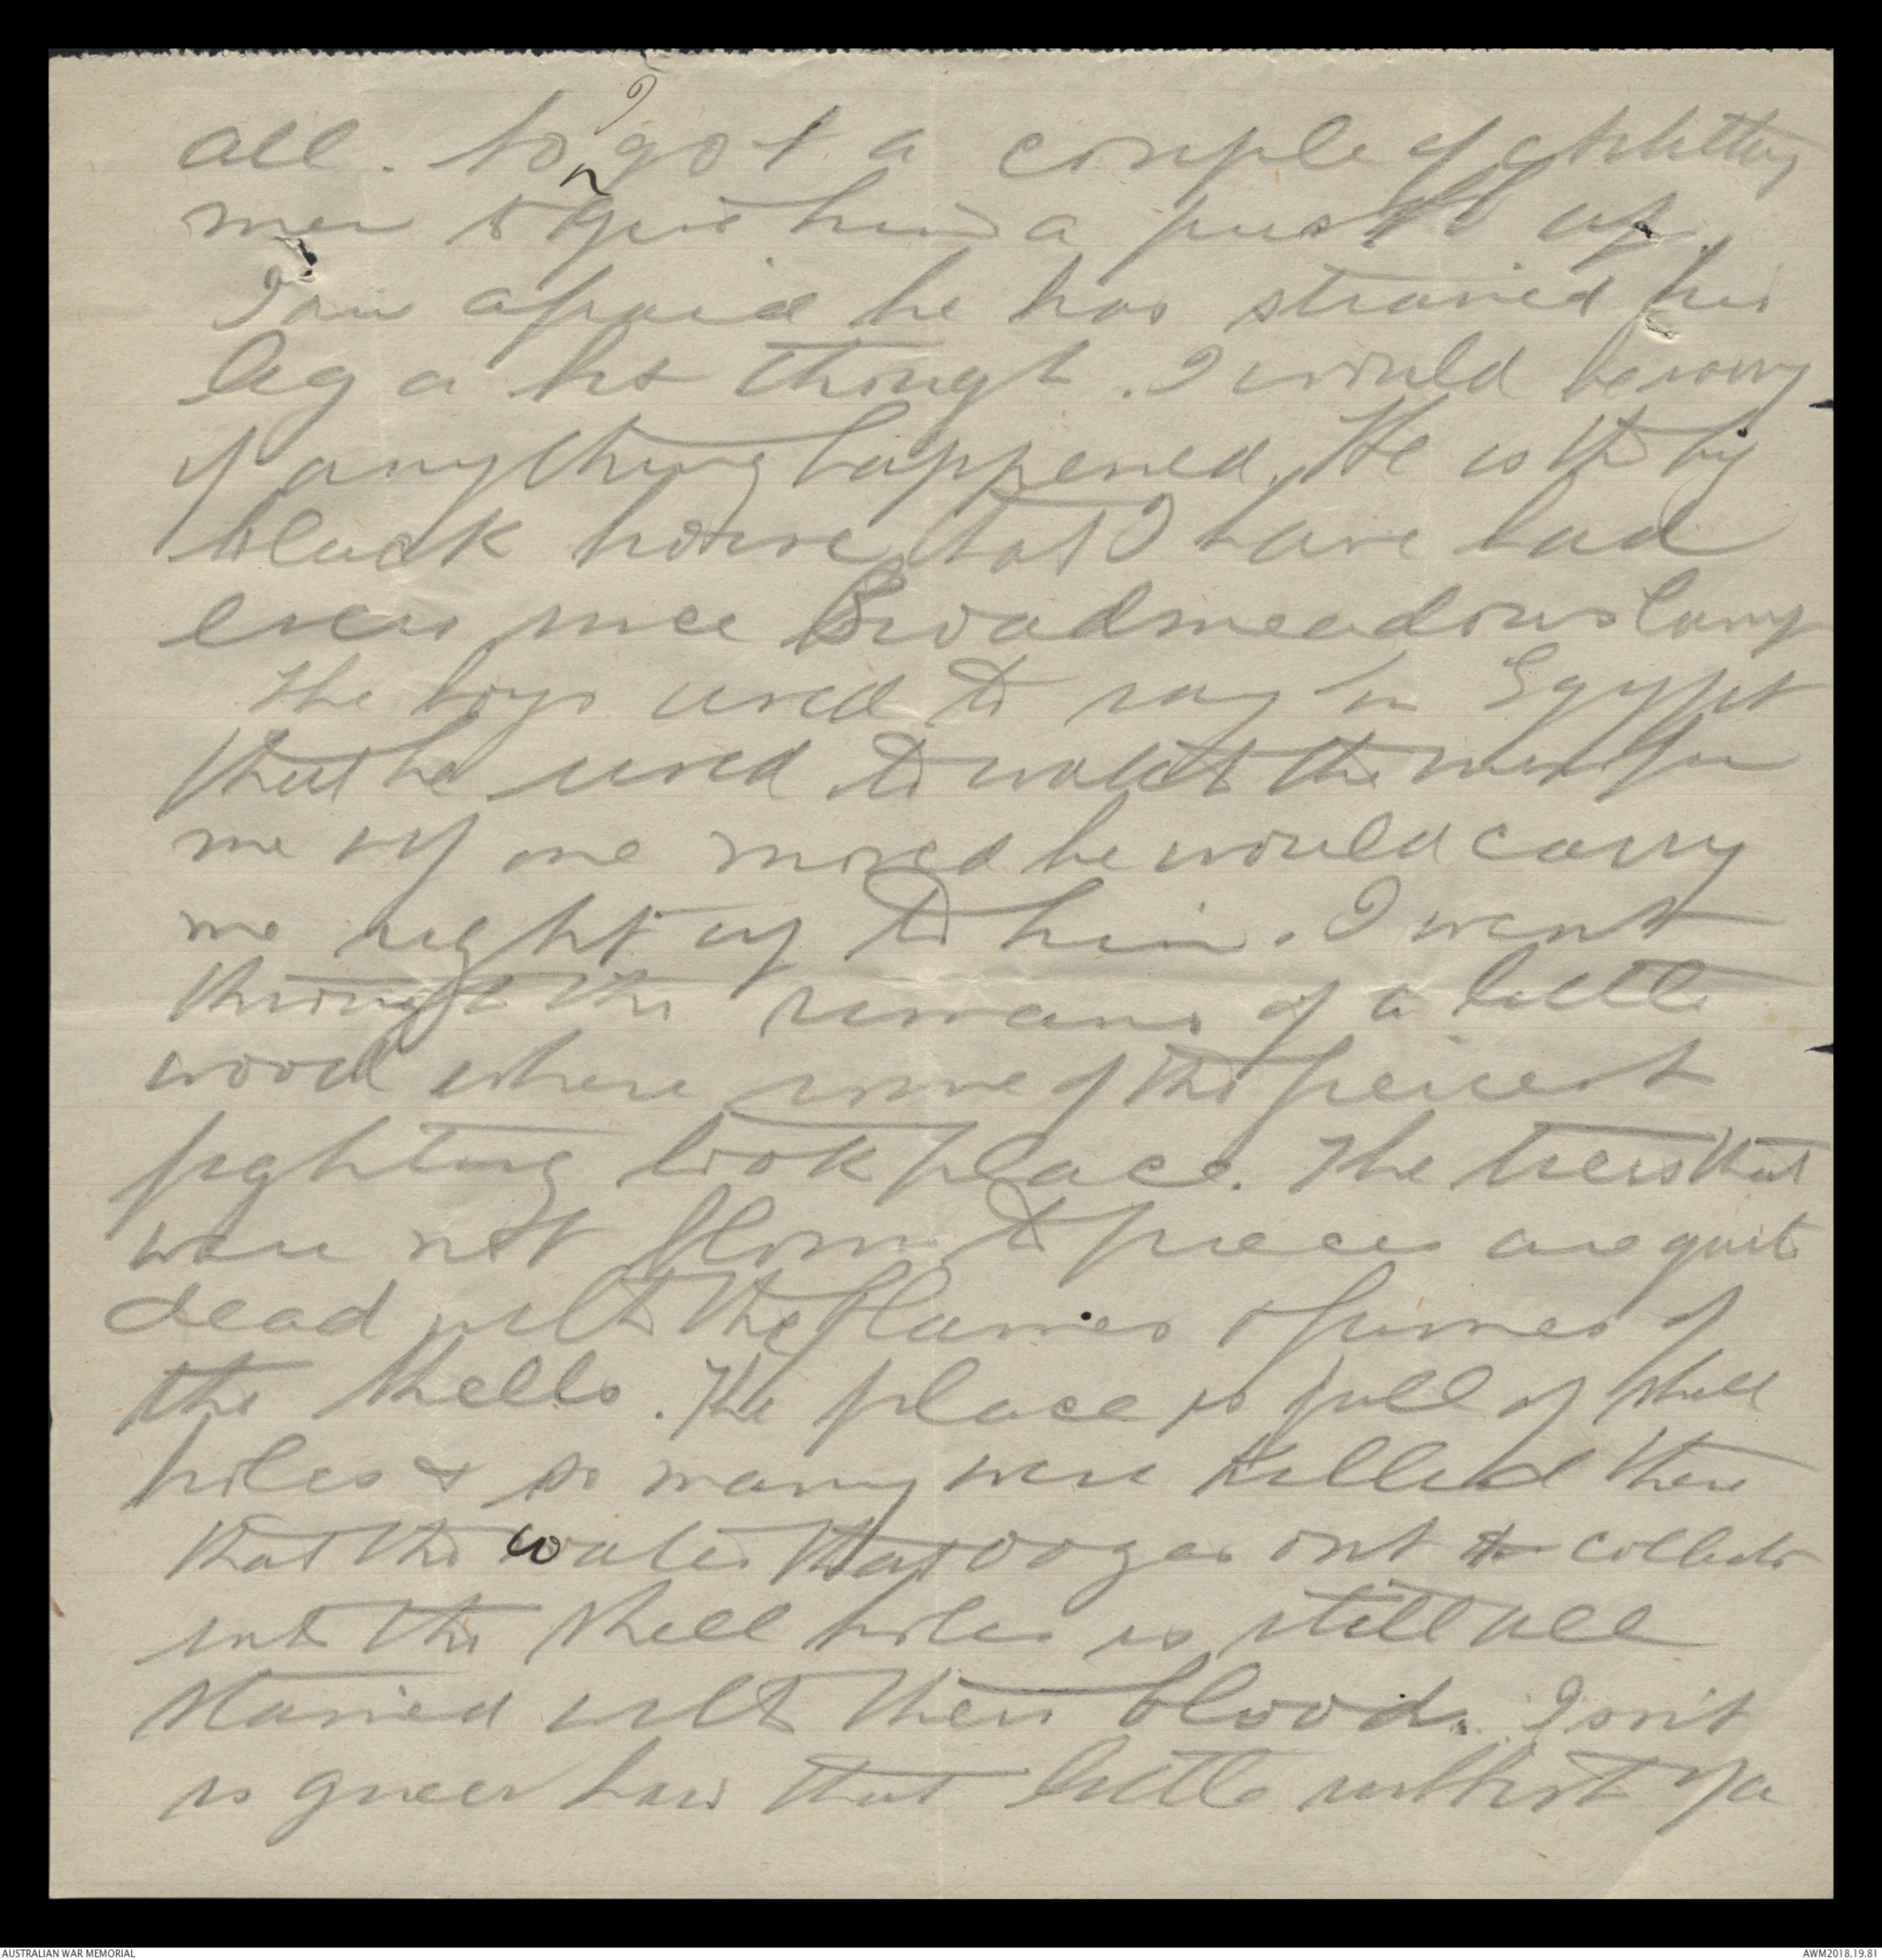 all. So got a couple of
men to give him a push up.
I am afraid he has strained his
leg a bit though. I would be sorry
if anything happened. He is the big
black horse that I have had
ever since Broadmeadows Camp
The boys used to say in Egypt
that he used to watch the men for
me & if one moved he would carry
me right up to him. I went
through the remains of a little
wood where some of the fiercest
fighting took place. The trees that
were not blown to pieces are quite
dead with the flames & fumes of
the shells. The place is full of shell
holes & so many were killed there
that the water that oozes out & collects
into the shell holes is still all
stained with their blood. Isn't
is queer how that little
AUSTRALIAN WAR MEMORIAL
AWM2018.19.81